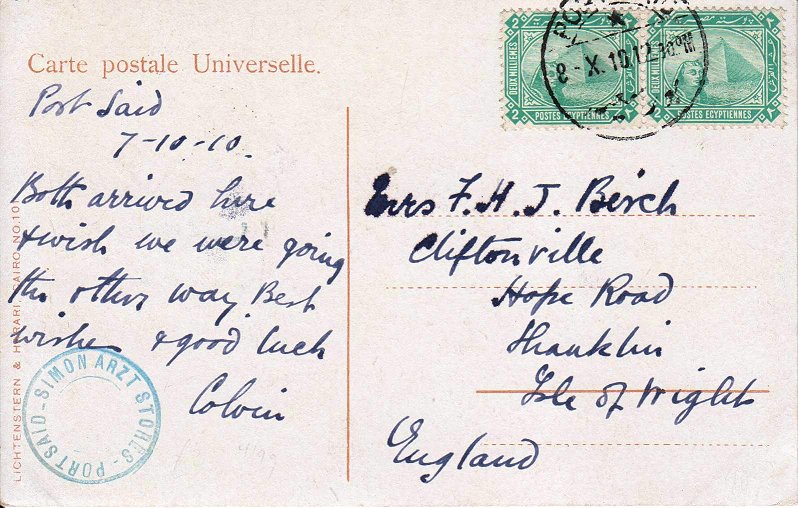 Carte postale Universelle.
Port Said
7-10-10.
Both arrived here
& wish we were going
the other way. Best
wishes & good luck
Colvin
Mrs F. H. J. Birch
Cliftonville
Hope Road
Shanklin
Isle of Wight
England
2 DEUX MILLIEMES 2
POSTES EGYPTIENNES
2 DEUX MILLIEMES 2
POSTES EGYPTIENNES
8-X.10
SIMON ARZT STORES - PORT SAID -
LICHTENSTERN & HARARI, CAIRO, NO. 101